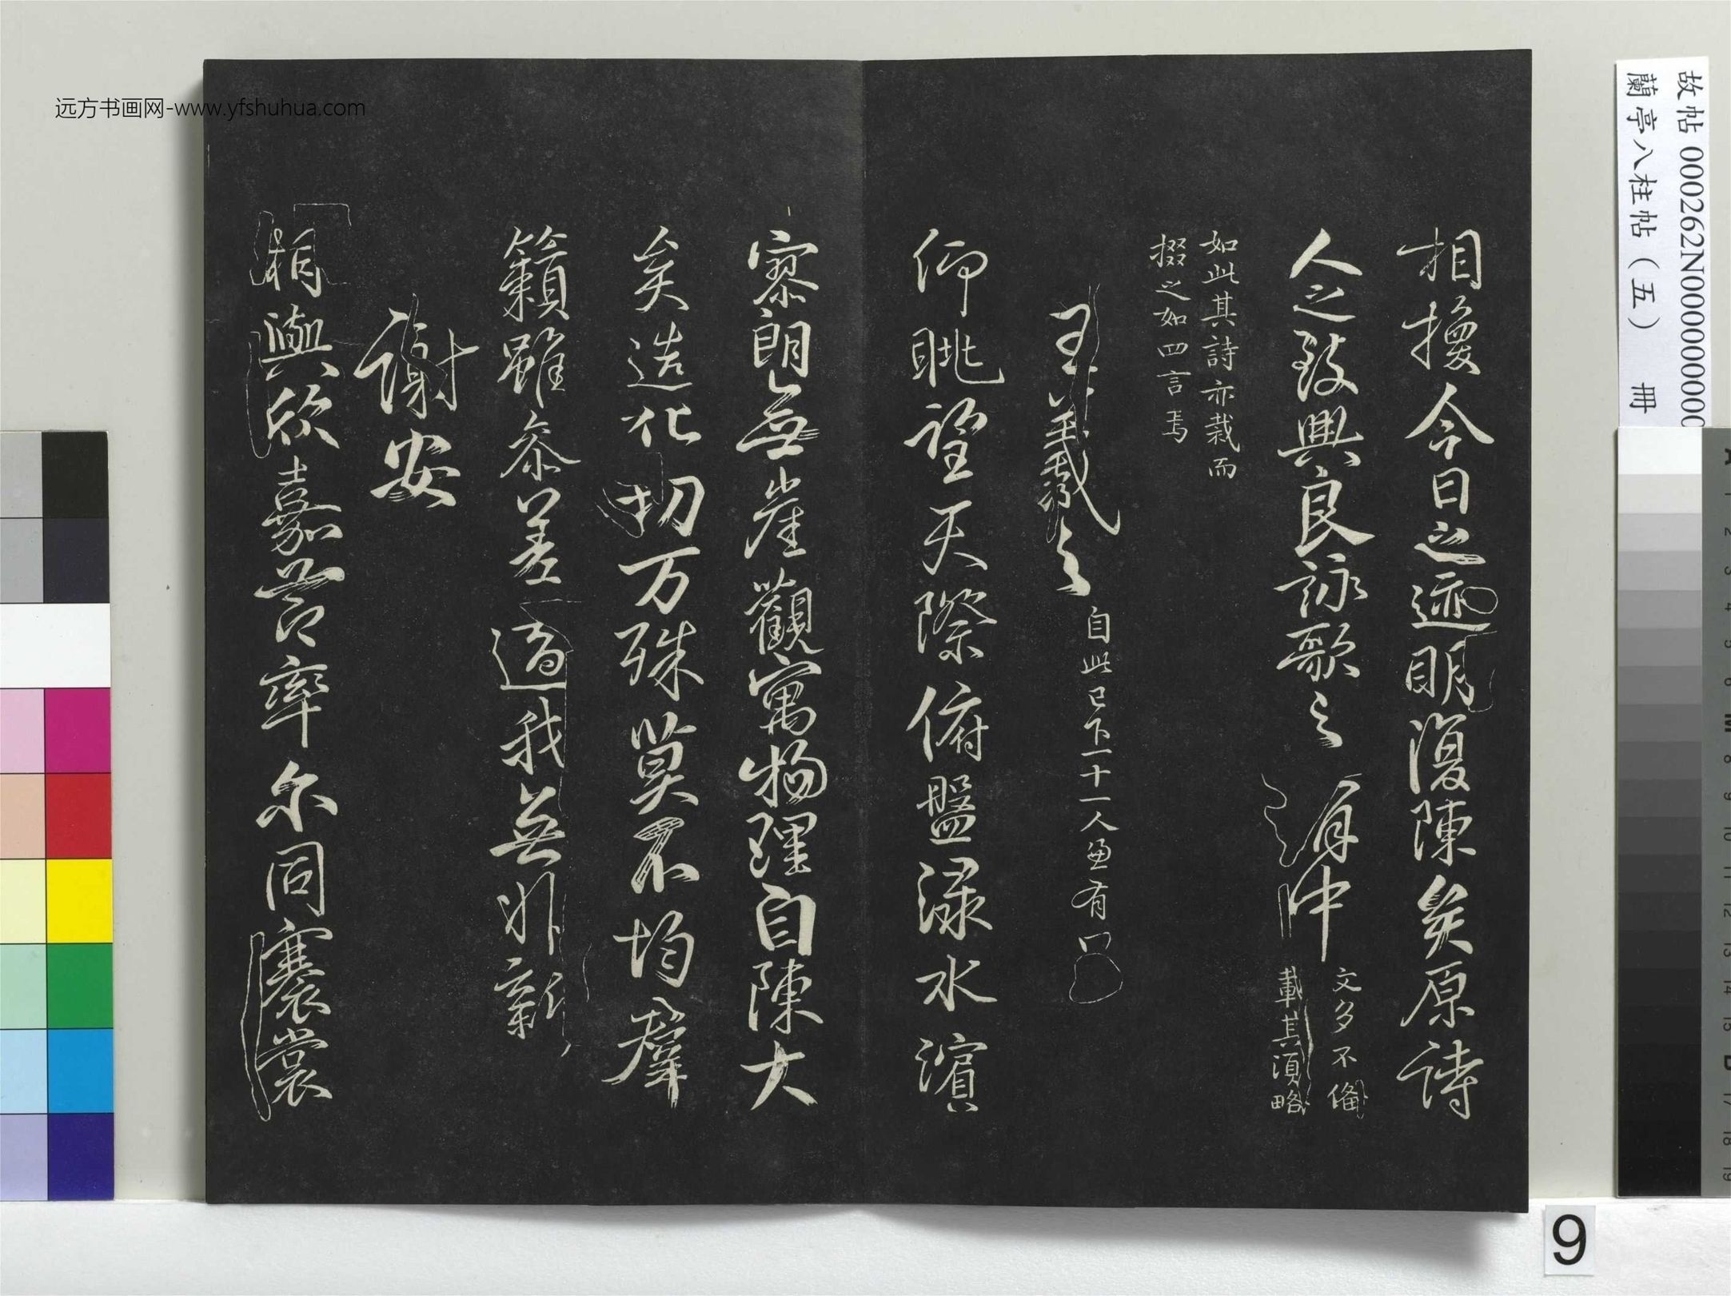 相換今日之迹明復陳矣原詩
人之致興良詠歌之有由
文多不備
載其須略
如此其詩亦裁而
掇之如四言焉
王羲之
自此已下十一人
有
仰眺望天際俯盤淥水濱
寥朗無崖觀寓物理自陳大
矣造化切万殊莫不均群
籟雖參差適我無非新
謝安
相與欣嘉節率尔同褰裳
故帖000262N000000000
蘭亭八柱帖（五） 冊
9
远方书画网-www.yfshuhua.com